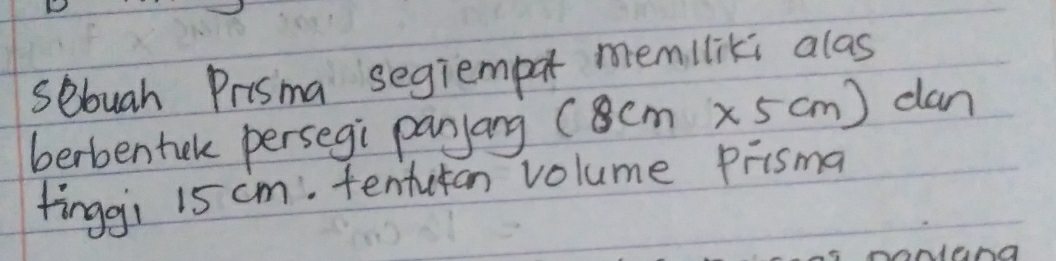 sebuah Prisma segiempat memiliki alas
berbentuk persegi panjang (8cm x 5 cm) dan
tinggi 15 cm. tentukan volume Prisma
panjang